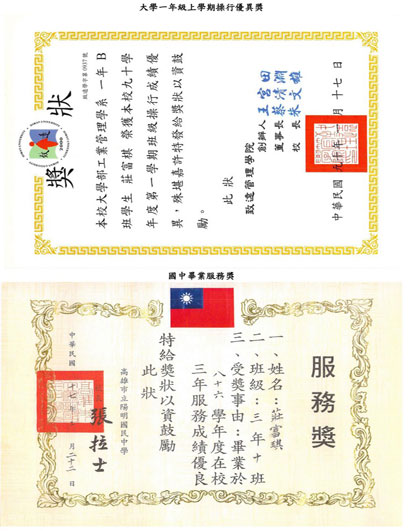 大學一年級上學期操行優異獎
獎狀
致遠
2000
本校大學部工業管理學系一年B
班學生 莊富棋 榮獲本校九十學
年度第一學期班級操行成績優
異,殊堪嘉許特發給獎狀以資鼓
勵。
此狀
致遠管理學院
創辦人
董事長 蔡清淵
校長 朱文雄
中華民國 月十七日
國中畢業服務獎
服務獎
一、姓名:莊富棋
二、班級:三年十班
三、受獎事由:畢業於
八十六學年度在校
三年服務成績優良
特給獎狀以資鼓勵
此狀
高雄市立陽明國民中學
張拉士
中華民國 十七年 月二十二日